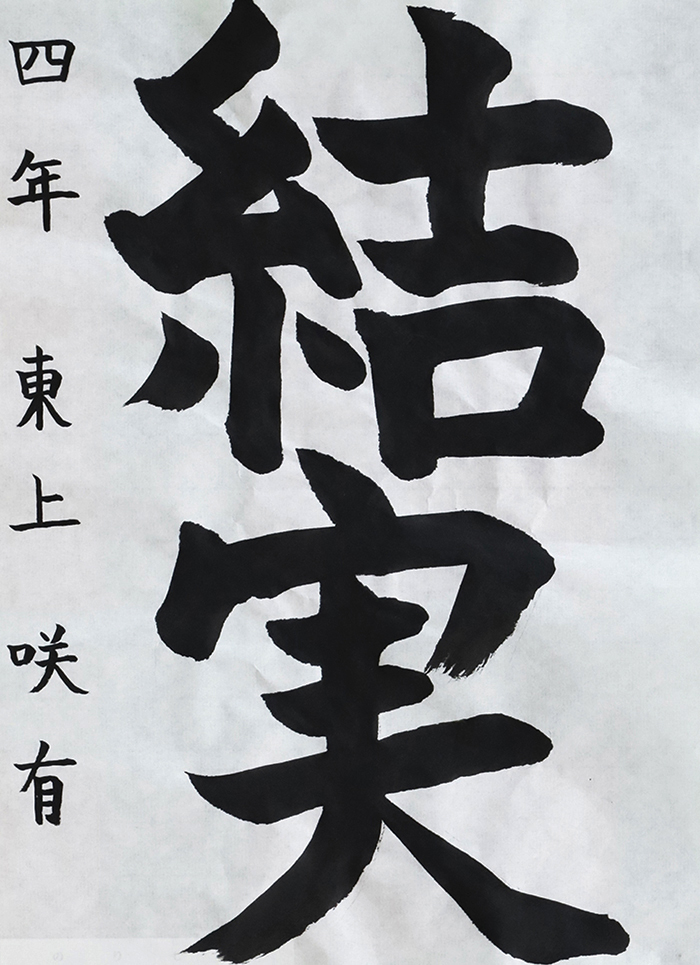 結実
四年 東上 咲有